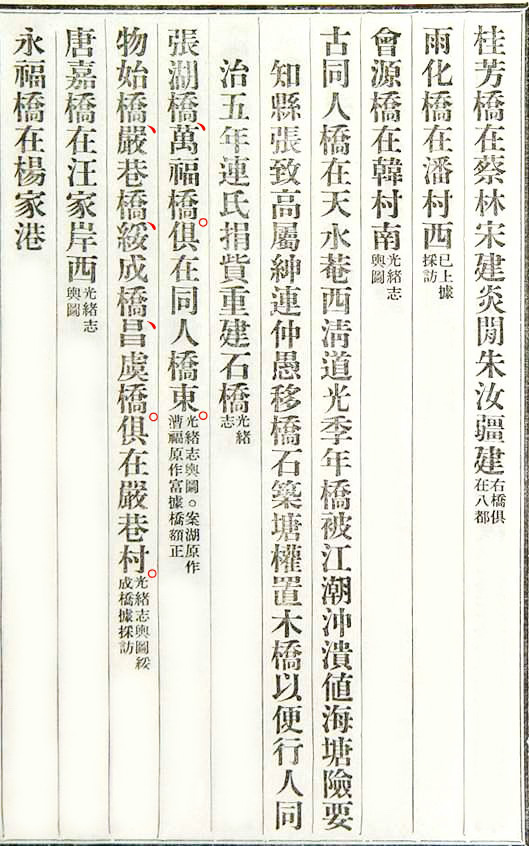 桂芳橋在蔡林宋建炎閒朱汝疆建右橋俱在八都
雨化橋在潘村西已上據採訪
會源橋在韓村南光緒志輿圖
古同人橋在天水菴西淸道光季年橋被江潮沖潰値海塘險要
知縣張致高屬紳連仲愚移橋石築塘權置木橋以便行人同
治五年連氏捐貲重建石橋光緒志
張湖橋、萬福橋。俱在同人橋東。光緒志輿圖。案湖原作漕福原作富據橋額正
物始橋、嚴巷橋、綏成橋、昌虞橋。俱在嚴巷村。光緒志輿圖綏成橋據採訪
唐嘉橋在汪家岸西光緒志輿圖
永福橋在楊家港